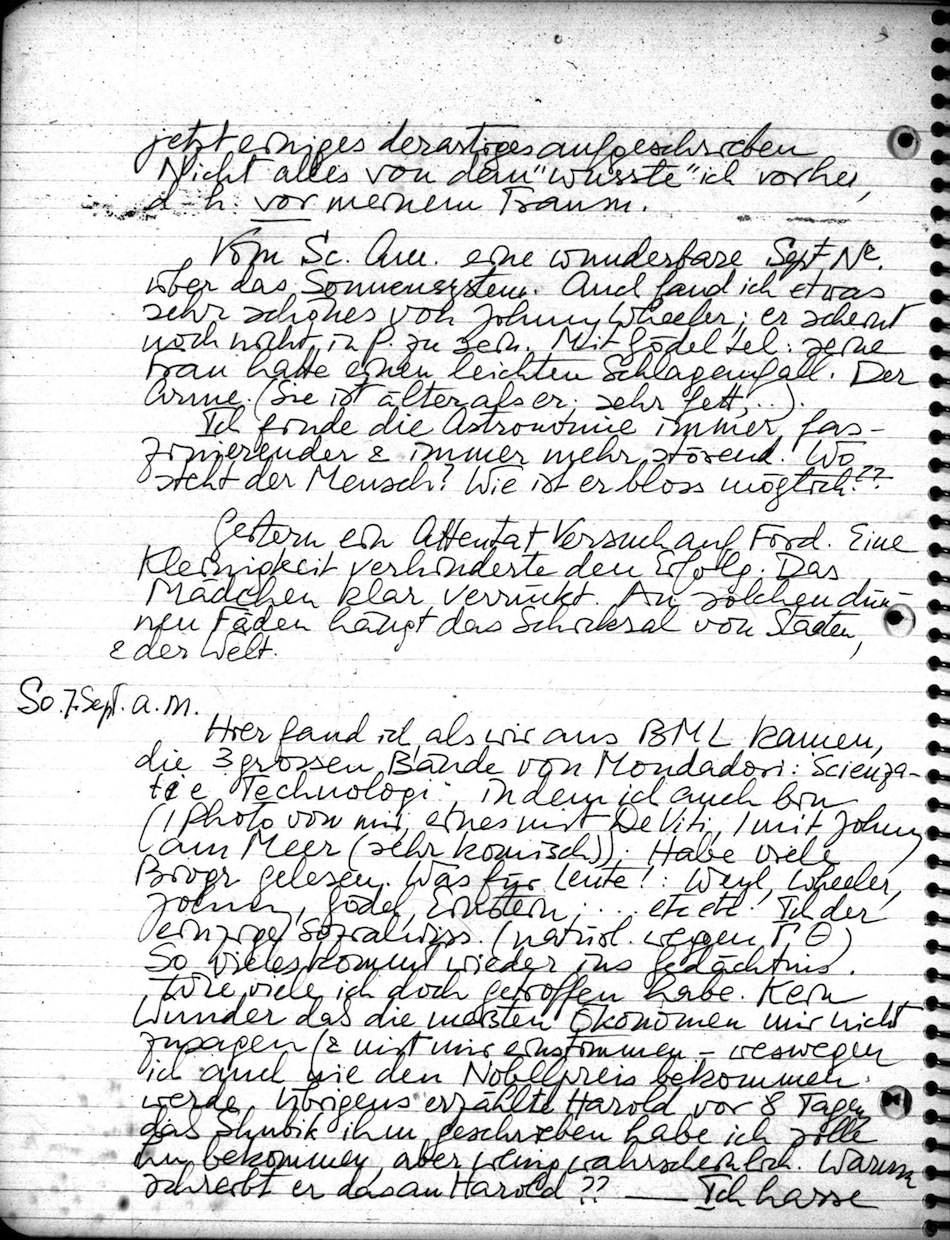 jetzt einiges derartiges aufgeschrieben
Nicht alles von dem "wusste" ich vorher,
d-h. vor meinem Traum.
Vom Sc. Am. eine wunderbare Sept Nr.
über das Sonnensystem. Auch fand ich etwas
sehr schönes von Johnny Wheeler; er scheint
noch nicht in P. zu sein. Mit Gödel tel: seine
Frau hatte einen leichten Schlaganfall. Der
Arme. (Sie ist älter als er; sehr fett, ..).
Ich finde die Astronomie immer fas-
zinierender & immer mehr störend. Wo
steht der Mensch? Wie ist er bloss möglich??
Gestern ein Attentat Versuch auf Ford. Eine
Kleinigkeit verhinderte den Erfolg. Das
Mädchen klar verrückt. An solchen dün-
nen Fäden hängt das Schicksal von Staaten,
& der Welt.
So. 7. Sept. a.m.
Hier fand ich, als wir aus BML kamen,
die 3 grossen Bände von Mondadori: Scienza-
ti e Technologi, in dem ich auch bin
(1 Photo von mir, eines mit De Viti, 1 mit Johnny
(am Meer (sehr komisch)); Habe viele
Biogr gelesen. Was für Leute!: Weyl, Wheeler,
Johnny, Gödel, Einstein, ... etc etc. Ich der
einzige Sozialwiss. (natürl. wegen T Θ)
So vieles kommt wieder ins Gedächtnis.
Wie viele ich doch getroffen habe. Kein
Wunder das die meisten Ökonomen mir nicht
zusagen (& mit mir einstimmen – weswegen
ich auch nie den Nobelpreis bekommen
werde. Übrigens erzählte Harold vor 8 Tagen
das Shubik ihm geschrieben habe ich solle
ihn bekommen, aber wenig wahrscheinlich. Warum
schreibt er das an Harold?? — Ich hasse